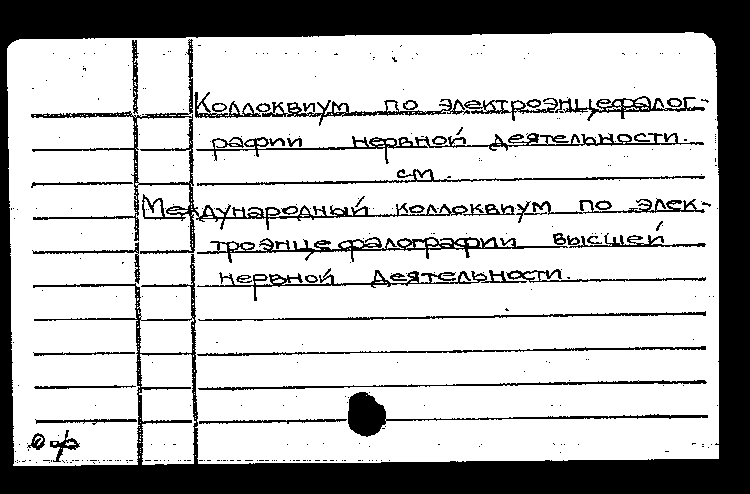 Коллоквиум по электроэнцефалог-
рафии нервной деятельности.
см.
Международный коллоквиум по элек-
троэнцефалографии высшей
нервной деятельности.
оф